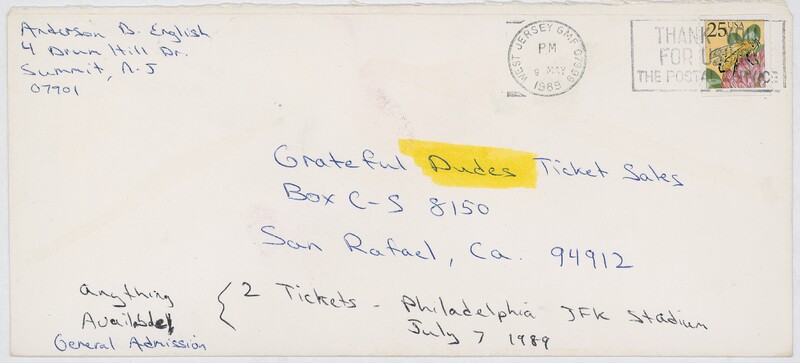 Anderson B. English
4 Drum Hill Dr.
Summit, N-J
07901
WEST JERSEY GMF 07999
PM
9 MAY
1989
THANK
FOR U
THE POSTAL
25 USA
Grateful Dudes Ticket Sales
Box C-S 8150
San Rafael, Ca. 94912
Anything
Available,
General Admission
2 Tickets - Philadelphia JFK Stadium
July 7 1989